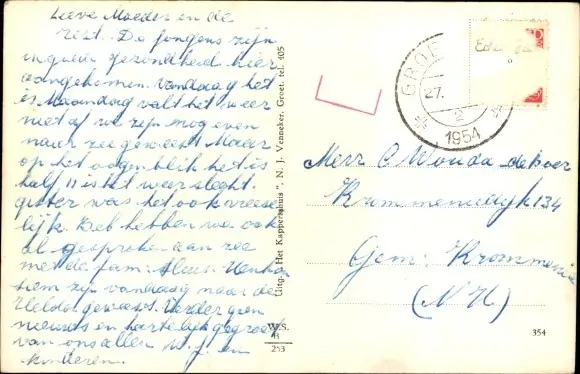 Lieve Moeder en de
rest. De jongens zijn
in goede gezondheid hier
aangekomen. Vandaag het
is Maandag valt het weer
niet af we zijn nog even
naar zee geweest. Maar
op het oogenblik het is
half 11 is het weer slegt.
gister was het ook vreese
lijk. Eeb hebben we ook
al gesproken aan zee
met de fam: Sluis.
zijn vandaag naar de
geweest. Verder geen
nieuws en hartelijk gegroet
van ons allen W. J. en
kinderen.
Uitg. „Het Kappershuis" N. J. Venneker, Groet, tel. 405
W.S.
B
253
GROE
27.
2
1954
Mevr C Wouda de Boer
Krommeniedijk 134
Gem: Krommenie
(N H)
354